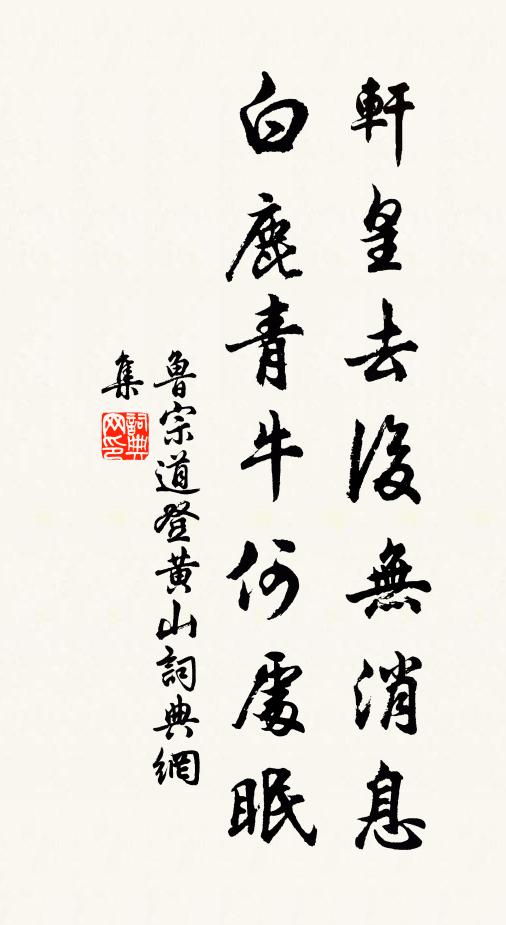 軒皇去後無消息
白鹿青牛何處眠
魯宗道登黃山詞典網
集
詞典
网印